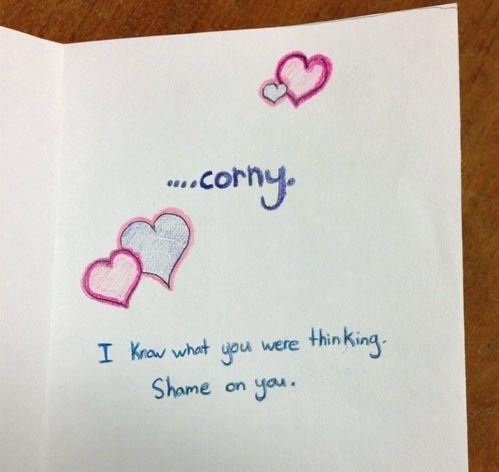 ....corny.
I know what you were thinking.
Shame on you.